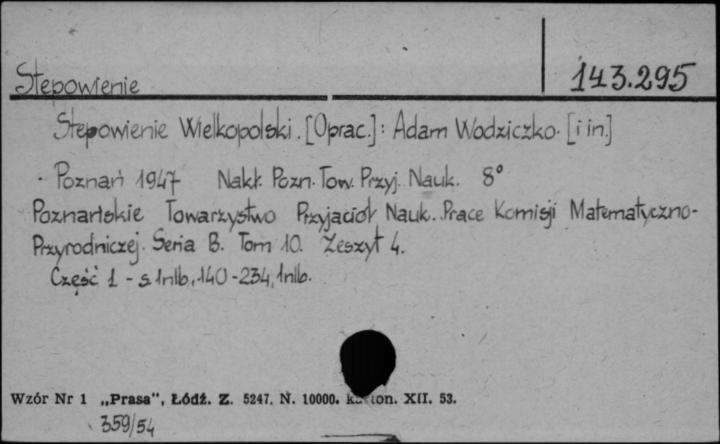 Stepowienie 143.295
Stepowienie Wielkopolski. [Oprac.]: Adam Wodziczko. [i in.]
Poznań 1947 Nakł. Pozn. Tow. Przyj. Nauk. 8°
Poznańskie Towarzystwo Przyjaciół Nauk. Prace Komisji Matematyczno-
Przyrodniczej. Seria B. Tom 10. Zeszyt 4.
Część 1 - s. 1nlb., 140-234, 1nlb.
Wzór Nr 1 „Prasa", Łódź. Z. 5247. N. 10000. XII. 53.
359/54